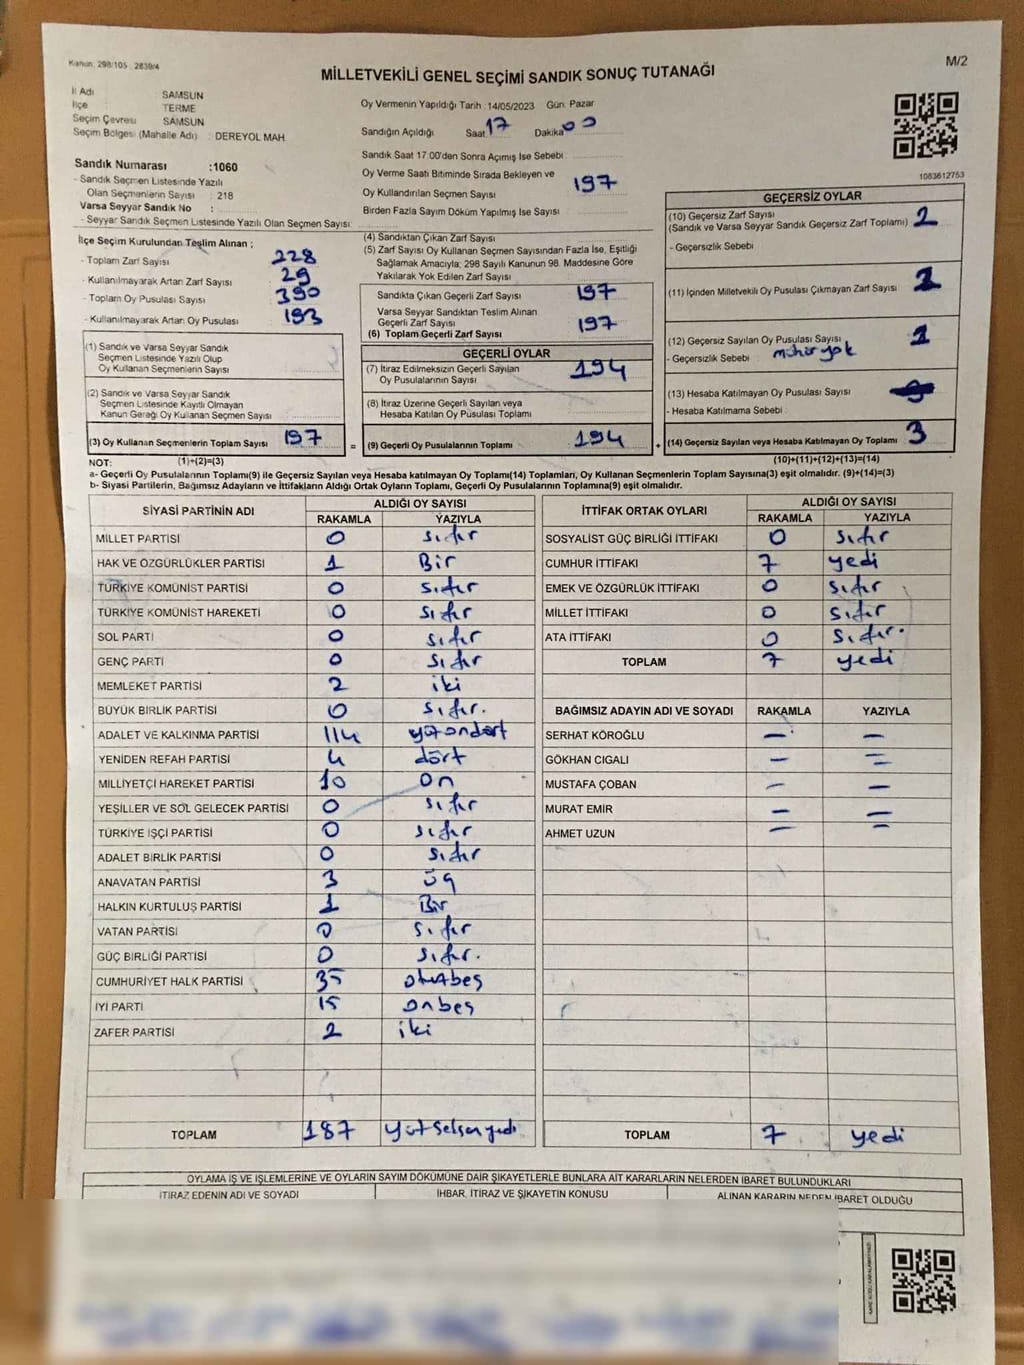 Kanun: 298/105 2839/4
M/2
MİLLETVEKİLİ GENEL SEÇİMİ SANDIK SONUÇ TUTANAĞI
İl Adı SAMSUN
İlçe TERME
Seçim Çevresi SAMSUN
Seçim Bölgesi (Mahalle Adı) : DEREYOL MAH
Sandık Numarası :1060
- Sandık Seçmen Listesinde Yazılı
Olan Seçmenlerin Sayısı : 218
Varsa Seyyar Sandık No :
- Seyyar Sandık Seçmen Listesinde Yazılı Olan Seçmen Sayısı:
Oy Vermenin Yapıldığı Tarih :14/05/2023 Gün: Pazar
Sandığın Açıldığı Saat 17 Dakika 00
Sandık Saat 17:00'den Sonra Açımış İse Sebebi
Oy Verme Saati Bitiminde Sırada Bekleyen ve
Oy Kullandırılan Seçmen Sayısı 197
Birden Fazla Sayım Döküm Yapılmış İse Sayısı :
1083612753
İlçe Seçim Kurulundan Teslim Alınan ;
- Toplam Zarf Sayısı 228
- Kullanılmayarak Artan Zarf Sayısı 29
- Toplam Oy Pusulası Sayısı 390
- Kullanılmayarak Artan Oy Pusulası 193
(1) Sandık ve Varsa Seyyar Sandık
Seçmen Listesinde Yazılı Olup
Oy Kullanan Seçmenlerin Sayısı
(2) Sandık ve Varsa Seyyar Sandık
Seçmen Listesinde Kayıtlı Olmayan
Kanun Gereği Oy Kullanan Seçmen Sayısı
(3) Oy Kullanan Seçmenlerin Toplam Sayısı 197
(4) Sandıktan Çıkan Zarf Sayısı
(5) Zarf Sayısı Oy Kullanan Seçmen Sayısından Fazla İse, Eşitliği
Sağlamak Amacıyla; 298 Sayılı Kanunun 98. Maddesine Göre
Yakılarak Yok Edilen Zarf Sayısı
Sandıkta Çıkan Geçerli Zarf Sayısı 197
Varsa Seyyar Sandıktan Teslim Alınan
Geçerli Zarf Sayısı 197
(6) Toplam Geçerli Zarf Sayısı
GEÇERLİ OYLAR
(7) İtiraz Edilmeksizin Geçerli Sayılan
Oy Pusulalarının Sayısı 194
(8) İtiraz Üzerine Geçerli Sayılan veya
Hesaba Katılan Oy Pusulası Toplamı
= (9) Geçerli Oy Pusulalarının Toplamı 194 +
GEÇERSİZ OYLAR
(10) Geçersiz Zarf Sayısı
(Sandık ve Varsa Seyyar Sandık Geçersiz Zarf Toplamı)
- Geçersizlik Sebebi
(11) İçinden Milletvekili Oy Pusulası Çıkmayan Zarf Sayısı
(12) Geçersiz Sayılan Oy Pusulası Sayısı 1
- Geçersizlik Sebebi : mühür yok
(13) Hesaba Katılmayan Oy Pusulası Sayısı
- Hesaba Katılmama Sebebi :
(14) Geçersiz Sayılan veya Hesaba Katılmayan Oy Toplamı 3
NOT: (1)+(2)=(3) (10)+(11)+(12)+(13)=(14)
a- Geçerli Oy Pusulalarının Toplamı(9) ile Geçersiz Sayılan veya Hesaba katılmayan Oy Toplamı(14) Toplamları, Oy Kullanan Seçmenlerin Toplam Sayısına(3) eşit olmalıdır. (9)+(14)=(3)
b- Siyasi Partilerin, Bağımsız Adayların ve İttifakların Aldığı Ortak Oyların Toplamı, Geçerli Oy Pusulalarının Toplamına(9) eşit olmalıdır.
SİYASİ PARTİNİN ADI ALDIĞI OY SAYISI
RAKAMLA YAZIYLA
MİLLET PARTİSİ 0 sıfır
HAK VE ÖZGÜRLÜKLER PARTİSİ 1 Bir
TÜRKİYE KOMÜNİST PARTİSİ 0 sıfır
TÜRKİYE KOMÜNİST HAREKETİ 0 sıfır
SOL PARTİ 0 sıfır
GENÇ PARTİ 0 sıfır
MEMLEKET PARTİSİ 2 iki
BÜYÜK BİRLİK PARTİSİ 0 sıfır.
ADALET VE KALKINMA PARTİSİ 114 yüzondört
YENİDEN REFAH PARTİSİ 4 dört
MİLLİYETÇİ HAREKET PARTİSİ 10 on
YEŞİLLER VE SOL GELECEK PARTİSİ 0 sıfır
TÜRKİYE İŞÇİ PARTİSİ 0 sıfır
ADALET BİRLİK PARTİSİ 0 sıfır
ANAVATAN PARTİSİ 3 üç
HALKIN KURTULUŞ PARTİSİ 1 Bir
VATAN PARTİSİ 0 sıfır
GÜÇ BİRLİĞİ PARTİSİ 0 sıfır.
CUMHURİYET HALK PARTİSİ 35 otuzbeş
İYİ PARTİ 15 onbeş
ZAFER PARTİSİ 2 iki
TOPLAM 187 yüzseksenyedi
İTTİFAK ORTAK OYLARI ALDIĞI OY SAYISI
RAKAMLA YAZIYLA
SOSYALİST GÜÇ BİRLİĞİ İTTİFAKI 0 sıfır
CUMHUR İTTİFAKI 7 yedi
EMEK VE ÖZGÜRLÜK İTTİFAKI 0 sıfır
MİLLET İTTİFAKI 0 sıfır
ATA İTTİFAKI 0 sıfır.
TOPLAM 7 yedi
BAĞIMSIZ ADAYIN ADI VE SOYADI RAKAMLA YAZIYLA
SERHAT KÖROĞLU — —
GÖKHAN CIGALI — =
MUSTAFA ÇOBAN — —
MURAT EMİR — —
AHMET UZUN = =
TOPLAM 7 yedi
OYLAMA İŞ VE İŞLEMLERİNE VE OYLARIN SAYIM DÖKÜMÜNE DAİR ŞİKAYETLERLE BUNLARA AİT KARARLARIN NELERDEN İBARET BULUNDUKLARI
İTİRAZ EDENİN ADI VE SOYADI İHBAR, İTİRAZ VE ŞİKAYETİN KONUSU ALINAN KARARIN NEDEN İBARET OLDUĞU